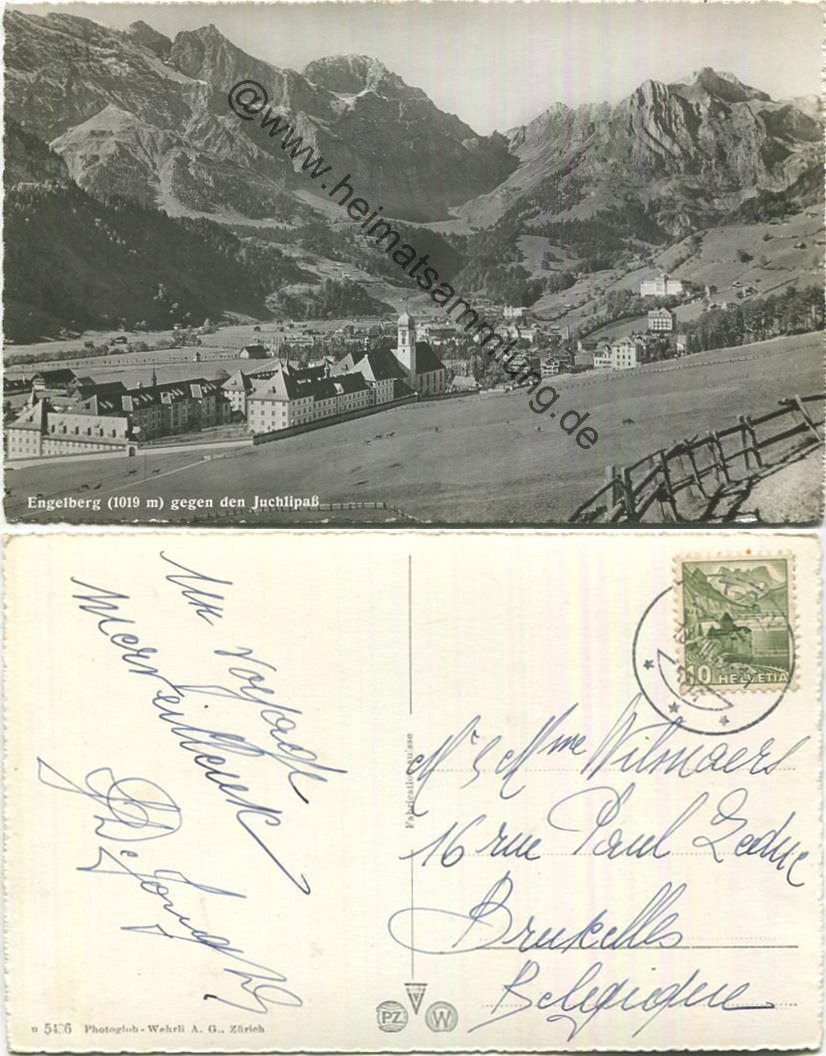 @www.heimatsammlung.de
Engelberg (1019 m) gegen den Juchlipaß
Un voyage
merveilleux
10 HELVETIA
Fabrication suisse
Mr & Mme Wilmaers
16 rue Paul Leduc
Bruxelles
Belgique
5436 Photoglob-Wehrli A. G., Zürich
PZ W